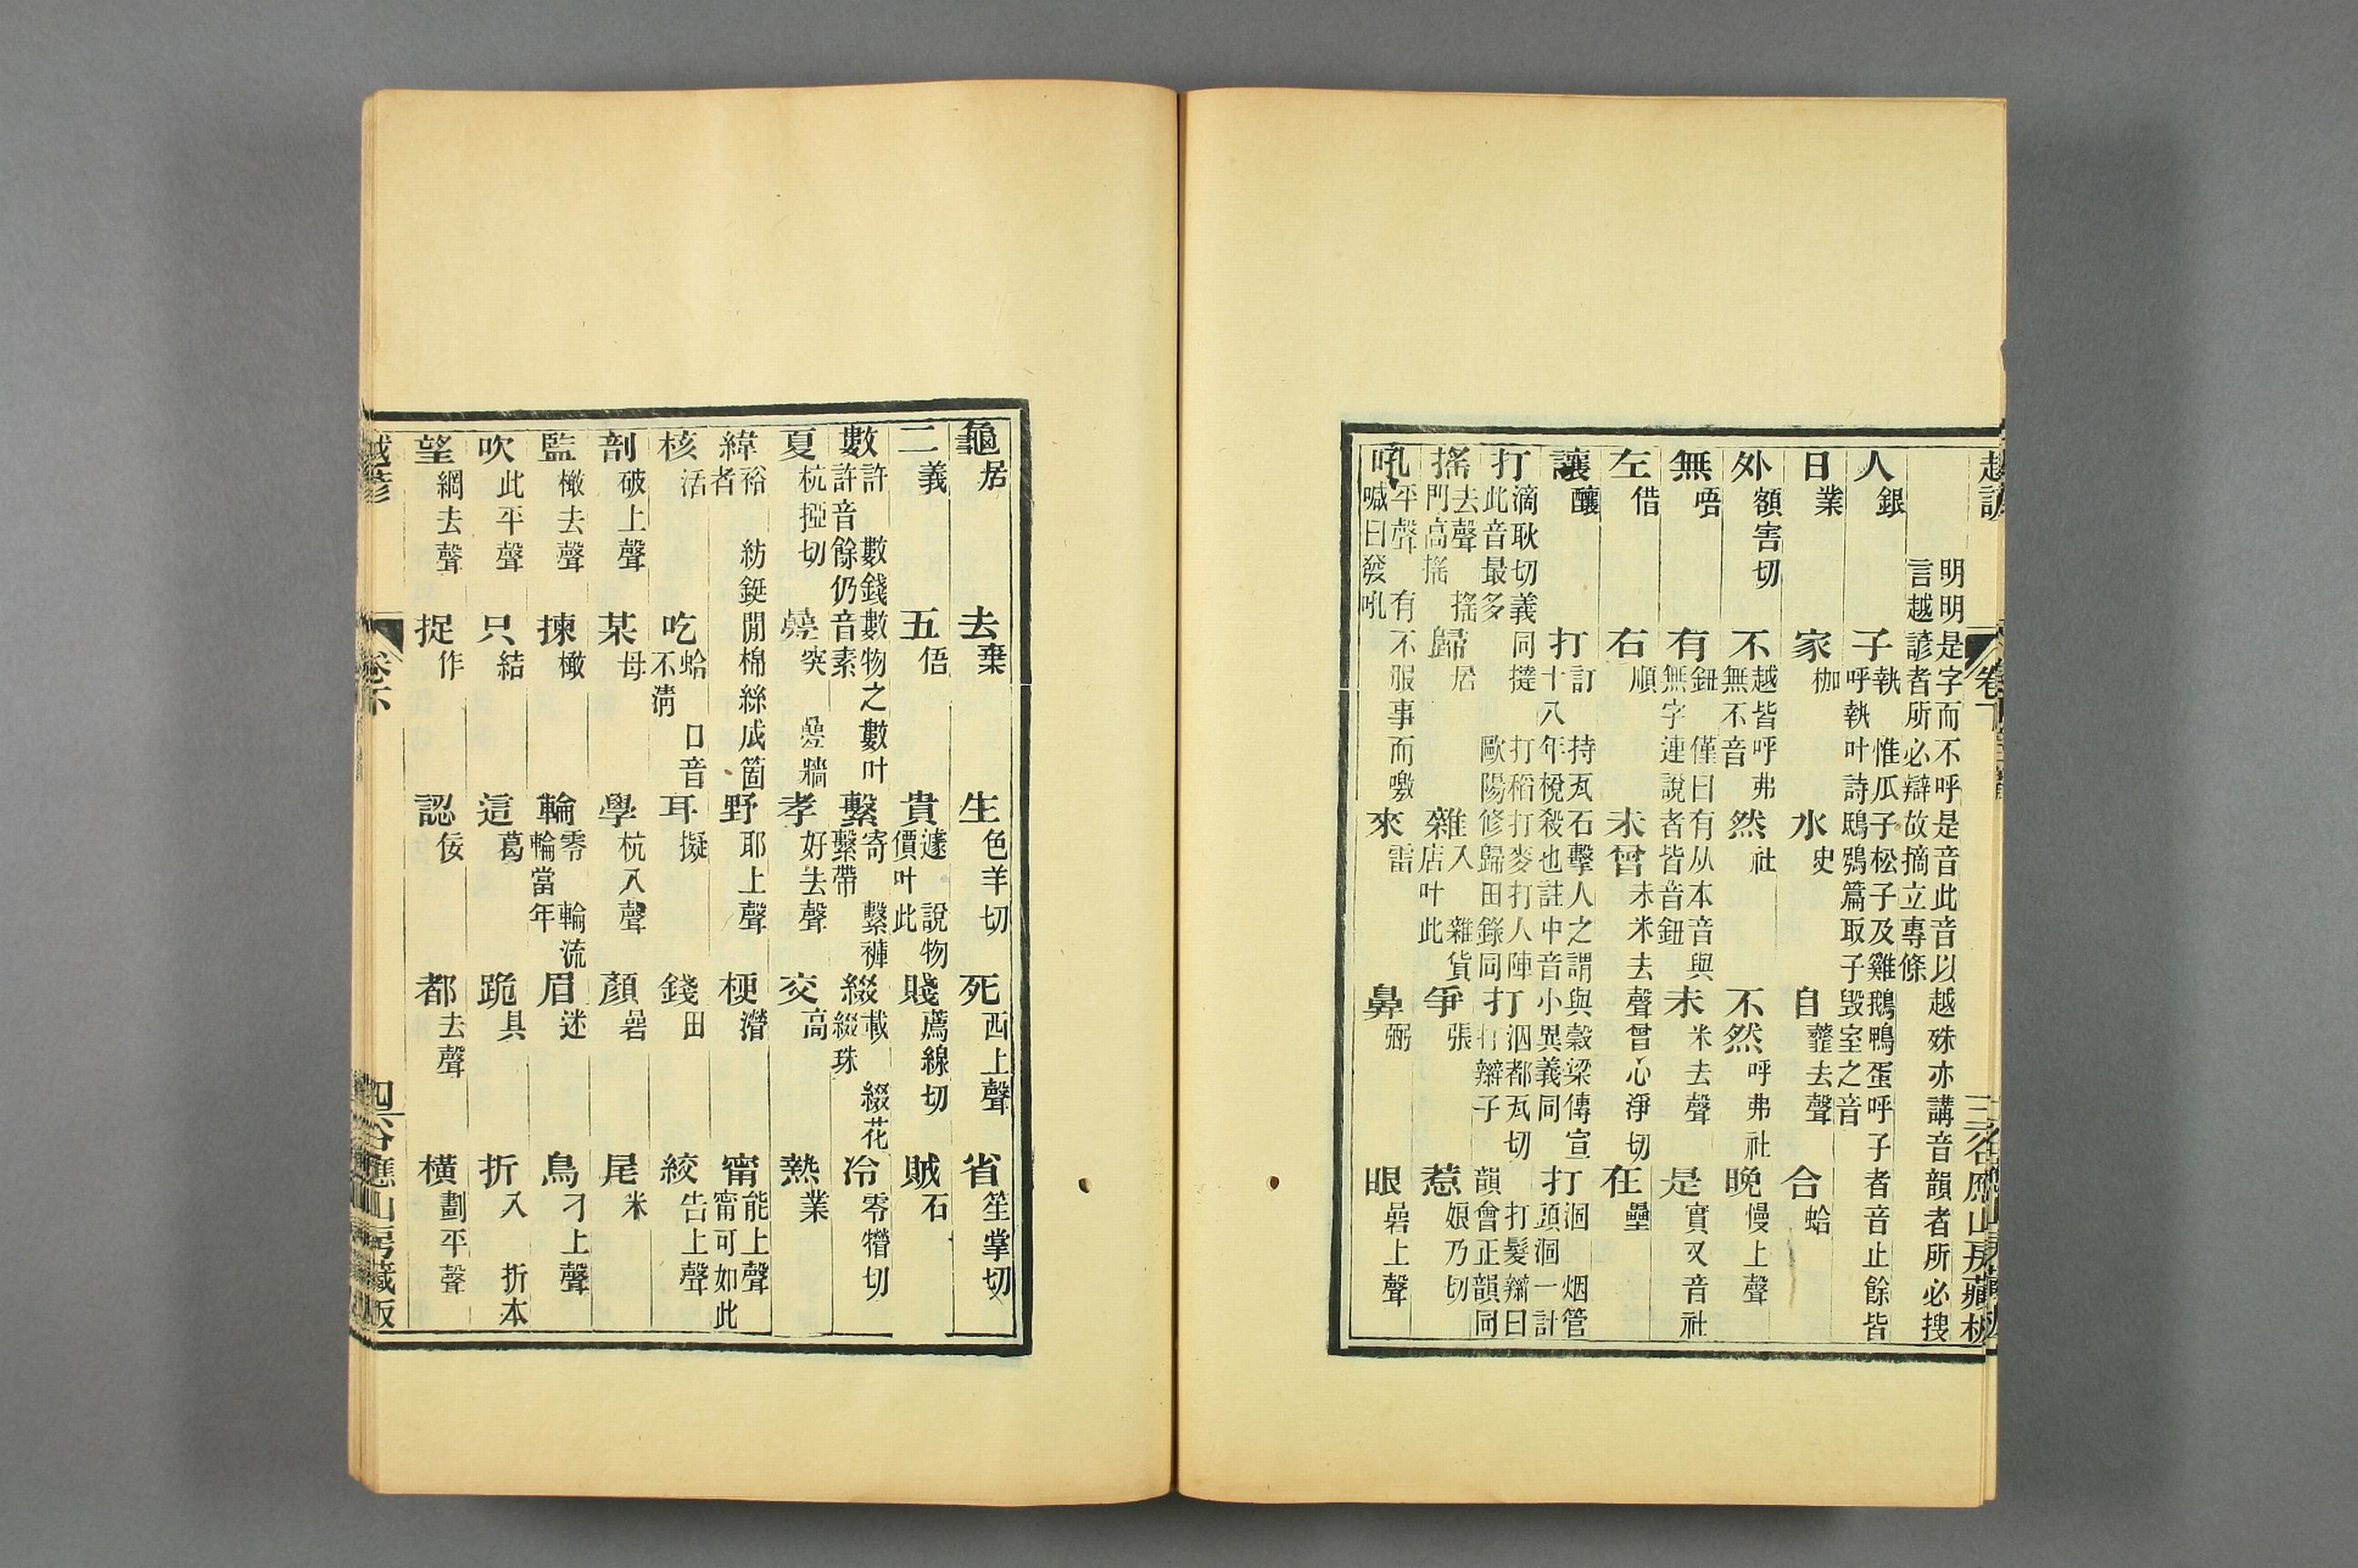 越諺 卷下
明明是字而不呼是音此音以越殊亦講音韻者所必搜
言越諺者所必辯故摘立專條
人銀 子執 惟瓜子松子及雞鵝鴨蛋呼子者音止餘皆呼執叶詩鴟鴞篇取子毀室之音
日業 家枷 水史 自虀去聲 合蛤
外額害切 不越皆呼弗無不音 然社 不然呼弗社 晚慢上聲
無唔 有鈕 僅曰有从本音與無字連說者皆音鈕 未米去聲 是實又音社
左借 右順 未曾未米去聲曾心淨切 在壘
讓釀 打訂 持瓦石擊人之謂與穀梁傳宣十八年梲殺也註中音小異義同 打洄 烟管頭洄一計
打滴耿切義同撻 打稻打麥打人陣此音最多 歐陽修歸田錄同 打洇都瓦切 打髮辮曰打辮子 韻會正韻同
搖去聲 搖門高搖 歸居 雜入 雜貨店叶此 爭張 惹娘乃切
吼平聲 有不服事而噭喊曰發吼 來雷 鼻弼 眼喦上聲
龜居 去棄 生色羊切 死西上聲 省笙掌切
二義 五俉 貴遽 說物價叶此 賤薦線切 賊石
數許 數錢數物之數叶許音餘仍音素 繫寄 繫褲繫帶 綴載 綴花綴珠 冷零㸢切
夏杭掗切 孝好去聲 交高 熱業
緯裕 紡鋌開棉絲成箇者 野耶上聲 梗濳 甯能上聲甯可如此
核活 吃蛤 口音不淸 耳擬 錢田 絞告上聲
剖破上聲 某母 學杭入聲 顏喦 尾米
監橄去聲 揀橄 輪零 輪流輪當年 眉迷 鳥刁上聲
吹此平聲 只結 這葛 跪具 折入 折本
望網去聲 捉作 認佞 都去聲 橫劃平聲
越諺 卷下